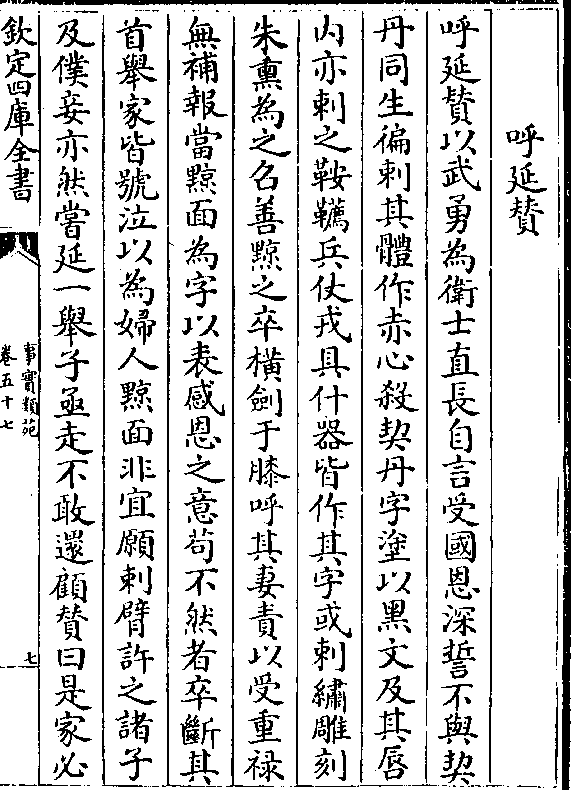 呼延贊
呼延賛以武勇為衛士直長自言受國恩深誓不與契
丹同生徧刺其體作赤心殺契丹字塗以黒文及其唇
内亦刺之鞍韉兵仗戎具什器皆作其字或刺繡雕刻
朱熏為之名善黥之卒横劍于膝呼其妻責以受重禄
無補報當黥面為字以表感恩之意苟不然者卒斷其
首舉家皆號泣以為婦人黥面非宜願刺臂許之諸子
及僕妾亦然嘗延一舉子亟走不敢還顧賛曰是家必
欽定四庫全書
事實類苑
卷五十七
七